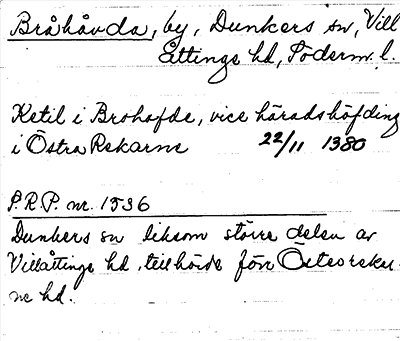 Bråhåvda, by, Dunkers sn, Vill
Åttinge hd, Söderm. l.
Ketil i Brohofde, vice häradshöfding
i Östra Rekarne 22/11 1380
P.R.P. nr. 1536
Dunkers sn liksom större delen av
Villåttinge hd, tillhörde förr Österrekar
ne hd.